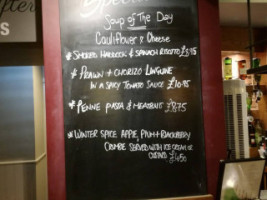 Soup of The Day
Cauliflower & Cheese
* Smoked Haddock & Spinach Risotto £8.95
* Prawn + Chorizo Linguine
in a Spicy Tomato Sauce £10.95
* Penne Pasta & Meatballs £8.75
* Winter Spice Apple, Plum + Blackberry
Crumble Served with Ice Cream or
Custard £4.50